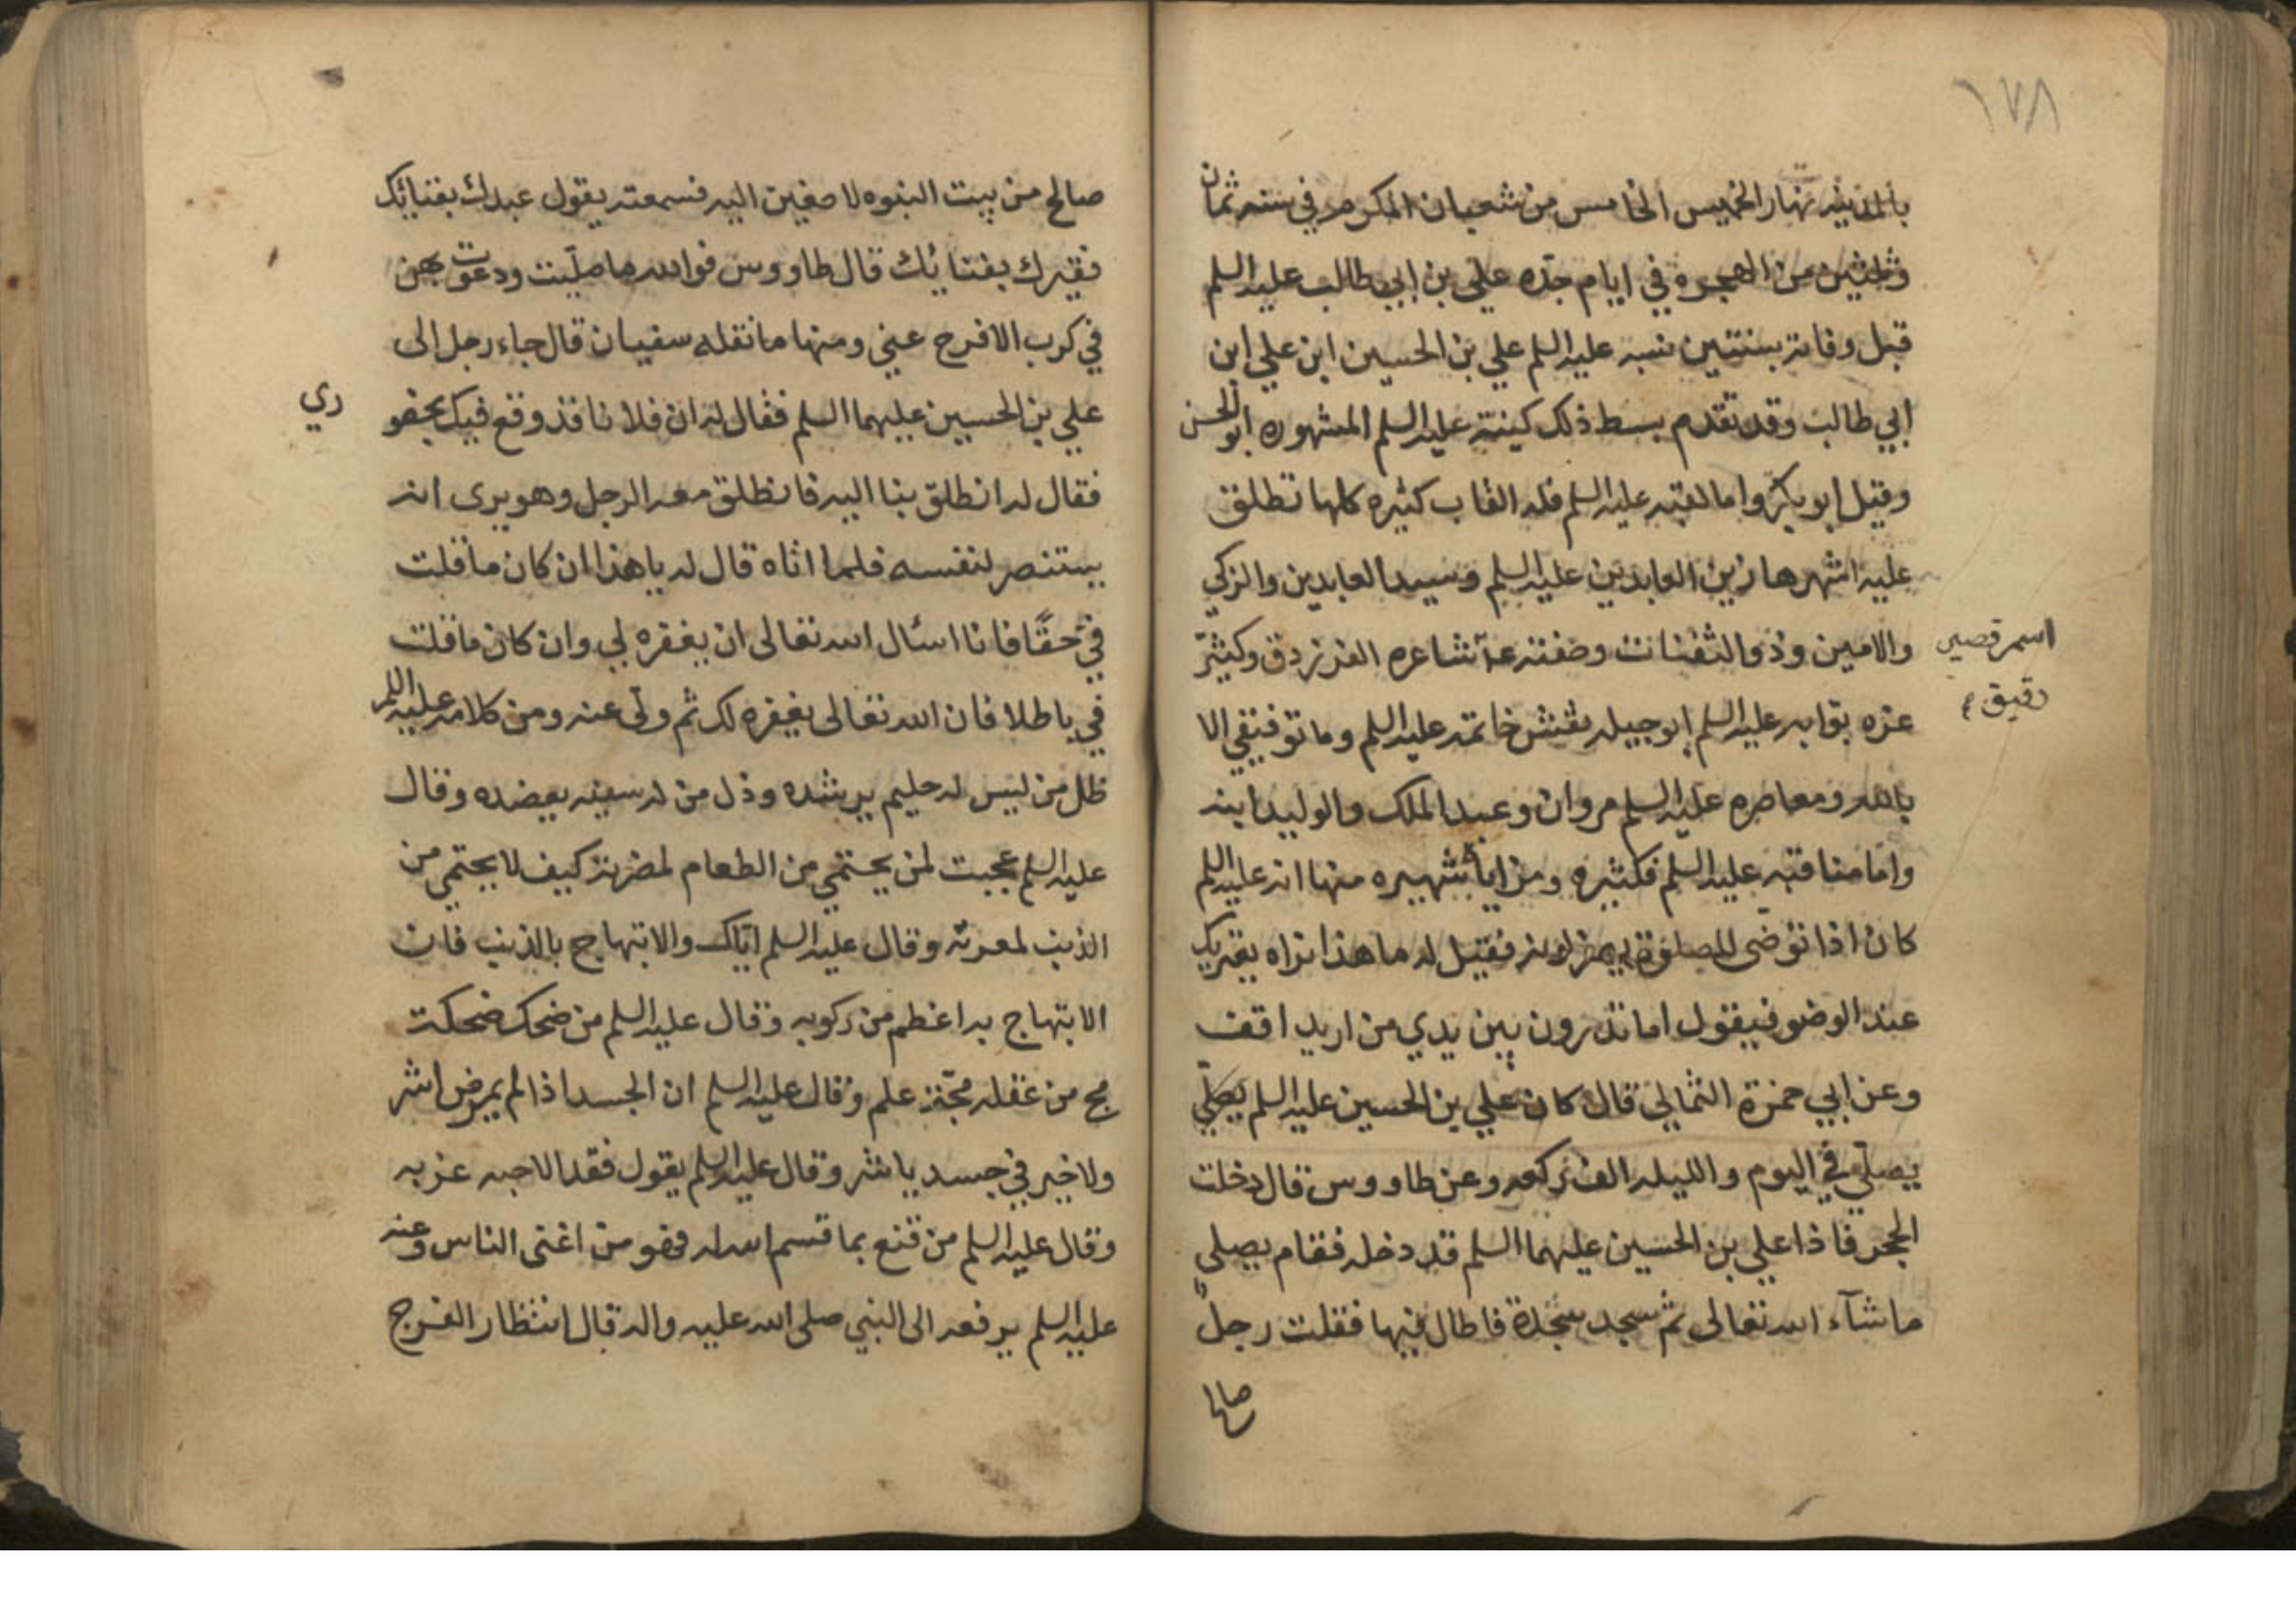 ١٧٨
بالمدينه نهار الخميس الخامس من شعبان المكرم في سنه ثمان
وثلثين من الهجره في ايام جدّه علي بن ابي طالب عليه السلم
قبل وفاته بسنتين نسبه عليه السلم علي بن الحسين ابن علي ابن
ابي طالب وقد تقدم بسط ذلك كينته عليه السلم المشهوره ابو الحسن
وقيل ابو بكر واما لقبه عليه السلم فله القاب كثيره كلها تطلق
عليه اشهرها زين العابدين عليه السلم وسيد العابدين والزكي
والامين وذو الثفنات وصفته شاعره الفرزدق وكثيّر
اسمر قصير
دقيق
عزه بوابه عليه السلم ابو جبيله نقش خاتمه عليه السلم وما توفيقي الا
بالله ومعاصره عليه السلم مروان وعبد الملك والوليد ابنه
واما مناقبه عليه السلم فكثيره ومزاياه شهيره منها انه عليه السلم
كان اذا توضى للصلوة يصفر لونه فقيل له ما هذا نراه يعتريك
عند الوضو فيقول اما تدرون بين يدي من اريد اقف
وعن ابي حمزة الثمالي قال كان علي بن الحسين عليه السلم يصلّي
يصلّي في اليوم والليله الف ركعه وعن طاووس قال دخلت
الحجر فاذا علي بن الحسين عليهما السلم قد دخله فقام يصلى
ماشآء الله تعالى ثم سجد سجدة فاطال فيها فقلت رجل
صالح
صالح من بيت النبوه لاصغين اليه فسمعته يقول عبدك بفنائك
فقيرك بفنائك قال طاووس فوالله ما صلّيت ودعوت بهن
في كرب الا فرج عني ومنها ما نقله سفيان قال جاء رجل الى
علي بن الحسين عليهما السلم فقال له ان فلانا قد وقع فيك بحضو
ري
فقال له انطلق بنا اليه فانطلق معه الرجل وهو يرى انه
يستنصر لنفسه فلما اتاه قال له يا هذا ان كان ما قلت
فيّ حقًا فانا اسئال الله تعالى ان يغفره لي وان كان ما قلت
في باطلا فان الله تعالى يغفره لك ثم ولّى عنه ومن كلامه عليه السلم
ظل من ليس له حليم يرشده وذل من له سفيه يعضده وقال
عليه السلم عجبت لمن يحتمي من الطعام لمضرته كيف لا يحتمي من
الذنب لمعرته وقال عليه السلم ايّاك والابتهاج بالذنب فان
الابتهاج به اعظم من ركوبه وقال عليه السلم من ضحك ضحكت
مج من عقله مجّته علم وقال عليه السلم ان الجسد اذا لم يمرض اشر
ولا خير في جسد ياشر وقال عليه السلم يقول فقد الاحبه غربه
وقال عليه السلم من قنع بما قسم الله له فهو من اغنى الناس وعنه
عليه السلم يرفعه الى النبي صلى الله عليه واله قال انتظار الفرج